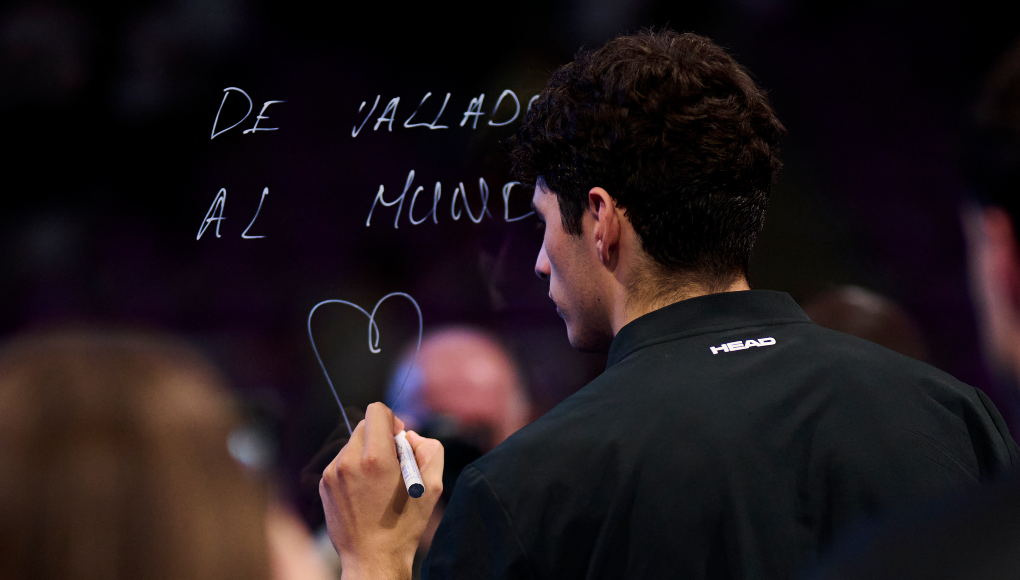 DE VALLAD
AL MUND
HEAD